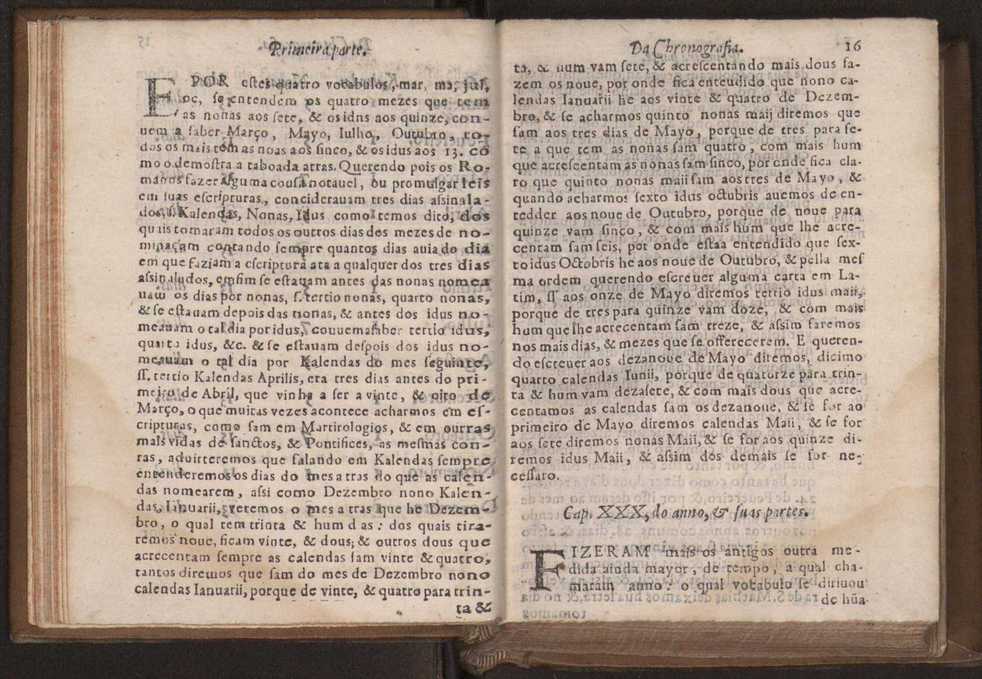 Primeira parte.
E POR estes quatro vocabulos, mar, ma, jul,
oc, se entendem os quatro mezes que tem
as nonas aos sete, & os idus aos quinze, con-
uem a saber Março, Mayo, Iulho, Outubro, to-
dos os mais tem as noas aos sinco, & os idus aos 13. co
mo o demostra a taboada atras. Querendo pois os Ro-
manos fazer alguma cousa notauel, ou promulgar leis
em suas escripturas, concideravam tres dias assinala-
dos, s. Kalendas, Nonas, Idus como temos dito, dos
quais tomaram todos os outros dias dos mezes de no-
minaçam contando sempre quantos dias auia do dia
em que faziam a escriptura ata a qualquer dos tres dias
assinaludos, em fim se estauam antes das nonas nomea
uam os dias por nonas, s. tertio nonas, quarto nonas,
& se estauam depois das nonas, & antes dos idus no-
meauam o tal dia por idus, conuem a saber tertio idus,
quarto idus, &c. & se estauam despois dos idus no-
meauam o tal dia por Kalendas do mes seguinte,
ss. tertio Kalendas Aprilis, era tres dias antes do pri-
meiro de Abril, que vinha a ser a vinte, & oito de
Março, o que muitas vezes acontece acharmos em es-
cripturas, como sam em Martirologios, & em outras
mais vidas de sanctos, & Pontifices, as mesmas con-
tas, aduirteremos que falando em Kalendas sempre
entenderemos os dias do mes a tras do que as calen-
das nomearem, assi como Dezembro nono Kalen-
das Ianuarii, veremos o mes a tras que he Dezem-
bro, o qual tem trinta & hum dias: dos quais tira-
remos noue, ficam vinte, & dous; & outros dous que
acrecentam sempre as calendas sam vinte & quatro,
tantos diremos que sam do mes de Dezembro nono
calendas Ianuarii, porque de vinte, & quatro para trin-
ta &
Da Chronografia. 16
ta, & hum vam sete, & acrescentando mais dous fa-
zem os noue, por onde fica entendido que nono ca-
lendas Ianuarii he aos vinte & quatro de Dezem-
bro, & se acharmos quinto nonas maij diremos que
sam aos tres dias de Mayo, porque de tres para se-
te a que tem as nonas sam quatro, com mais hum
que acrescentam as nonas sam sinco, por onde fica cla-
ro que quinto nonas maii sam aos tres de Mayo, &
quando acharmos sexto idus octubris auemos de en-
tedder aos noue de Outubro, porque de noue para
quinze vam sinco, & com mais hum que lhe acre-
centam sam seis, por onde estaa entendido que sex-
to idus Octobris he aos noue de Outubro, & pella mes
ma ordem querendo escreuer alguma carta em La-
tim, ss aos onze de Mayo diremos tertio idus maii,
porque de tres para quinze vam doze, & com mais
hum que lhe acrecentam sam treze, & assim faremos
nos mais dias, & mezes que se offerecerem. E queren-
do escreuer aos dezanoue de Mayo diremos, dicimo
quarto calendas Iunii, porque de quatorze para trin-
ta & hum vam dezasete, & com mais dous que acre-
centamos as calendas sam os dezanoue, & se for ao
primeiro de Mayo diremos calendas Maii, & se for
aos sete diremos nonas Maii, & se for aos quinze di-
remos idus Maii, & assim dos demais se for ne-
cessaro.
Cap. XXX, do anno, & suas partes.
FIZERAM mais os antigos outra me-
dida ainda mayor, de tempo, a qual cha-
maram anno: o qual vocabulo se diriuou
de hũa